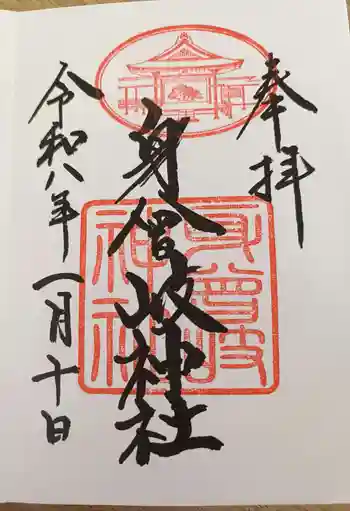 奉拝
身曾岐神社
令和八年一月十日
身曾岐
神社